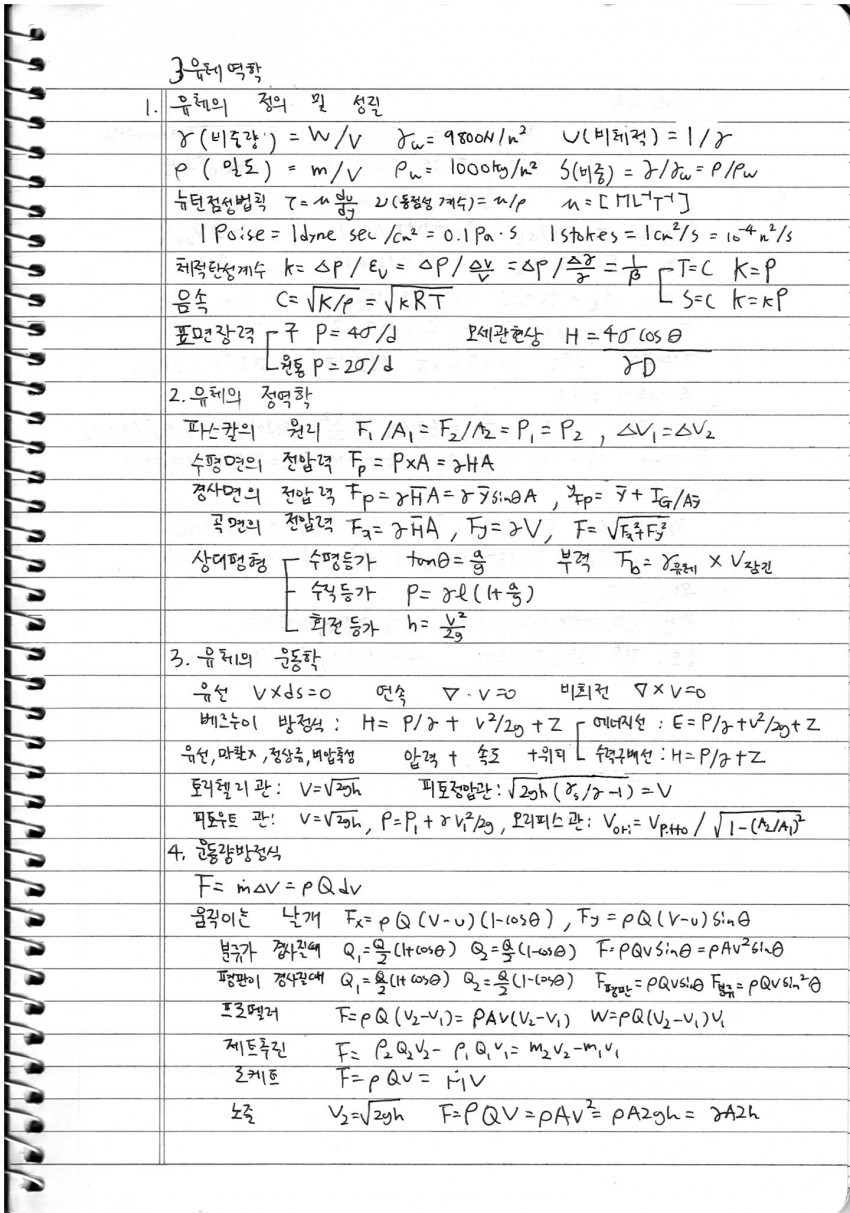 3 유체역학
1. 유체의 정의 및 성질
γ (비중량) = W/V γw = 9800N/m² υ(비체적) = 1/γ
ρ (밀도) = m/V ρw = 1000kg/m² S(비중) = γ/γw = ρ/ρw
뉴턴점성법칙 τ = μ du/dy ν(동점성 계수) = μ/ρ μ = [ML⁻¹T⁻¹]
1 Poise = 1dyne sec /cm² = 0.1 Pa · s 1 stokes = 1cm²/s = 10⁻⁴ m²/s
체적탄성계수 k = ΔP / εv = ΔP / Δv/v = ΔP / Δγ/γ = 1/β T=C K=P
음속 C = √K/ρ = √kRT S=C K=κP
표면장력 구 P = 4σ/d 모세관현상 H = 4σ cos θ / γD
원통 P = 2σ/d
2. 유체의 정역학
파스칼의 원리 F₁/A₁ = F₂/A₂ = P₁ = P₂ , ΔV₁ = ΔV₂
수평면의 전압력 Fp = P×A = γHA
경사면의 전압력 Fp = γH̄A = γ ȳ sinθ A , yFp = ȳ + IG/Aȳ
곡면의 전압력 Fx = γH̄A , Fy = γV, F = √Fx²+Fy²
상대평형 수평등가 tanθ = a/g 부력 Fb = γ유체 × V잠긴
수직등가 P = γl (1+a/g)
회전등가 h = V²/2g
3. 유체의 운동학
유선 V×ds=0 연속 ∇ · V=0 비회전 ∇×V=0
베르누이 방정식 : H = P/γ + V²/2g + Z 에너지선 : E = P/γ+V²/2g+Z
유선, 마찰x, 정상류, 비압축성 압력 + 속도 +위치 수력구배선 : H = P/γ+Z
토리첼리 관 : V=√2gh 피토정압관 : √2gh (γs/γ-1) = V
피토우트 관 : V=√2gh, P=P₁+γV₁²/2g , 오리피스 관 : Vori = Vpitto / √1-(A₂/A₁)²
4. 운동량방정식
F = ṁΔV = ρQdv
움직이는 날개 Fx = ρQ (V-u) (1-cosθ) , Fy = ρQ (V-u) sinθ
분류가 경사질때 Q₁=Q/2(1+cosθ) Q₂=Q/2(1-cosθ) F=ρQVsinθ = ρAV²sinθ
평판이 경사질때 Q₁=Q/2(1+cosθ) Q₂=Q/2(1-cosθ) F평판=ρQVsinθ F분류=ρQVsin²θ
프로펠러 F=ρQ(V₂-V₁) = ρAV(V₂-V₁) W=ρQ(V₂-V₁)V₁
제트추진 F= ρ₂Q₂V₂ - ρ₁Q₁V₁ = m₂V₂-m₁V₁
로케트 F=ρQV = ṀV
노즐 V₂=√2gh F=ρQV = ρAV² = ρA2gh = γA2h